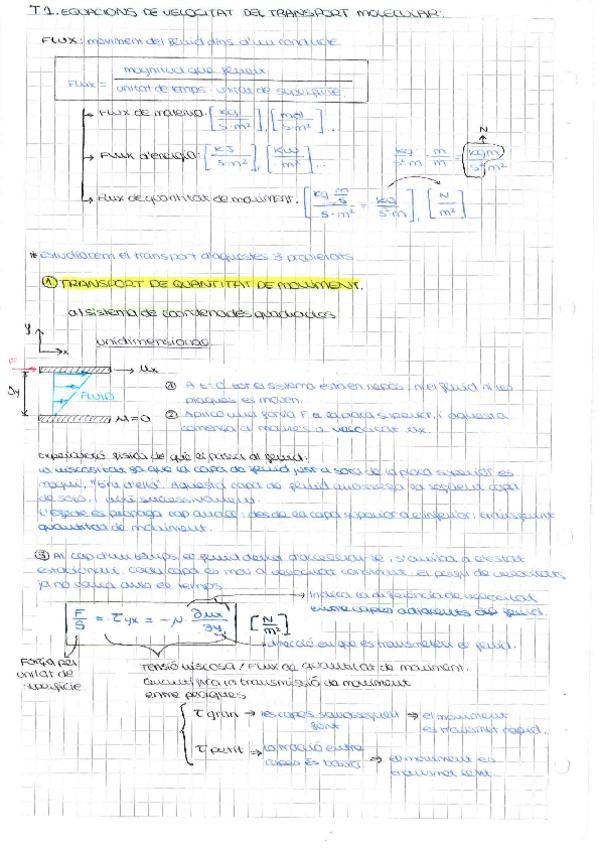 T1. EQUACIONS DE VELOCITAT DEL TRANSPORT MOLECULAR:
FLUX: moviment del fluid dins d'un conducte
FLUX = magnitud que flueix / unitat de temps · unitat de superfície
→ Flux de matèria: [kg / s·m²], [mol / s·m²] ...
→ Flux d'energia: [kJ / s·m²], [kW / m²] ...
→ Flux de quantitat de moviment: [kg m/s / s·m² = kg / s²·m], [N / m²]
kg / s²·m · m / m = kg m / s² m²
N
* Estudiarem el transport d'aquestes 3 propietats.
① TRANSPORT DE QUANTITAT DE MOVIMENT.
a) sistema de coordenades quadrades
unidimensional
y
x
F
→ ux
FLUID
u=0
① A t=0 tot el sistema està en repòs; ni el fluid ni les
plaques es mouen.
② Aplico una força F a la placa superior, i aquesta
comença a moure's a velocitat ux.
Explicació física de què li passa al fluid:
la viscositat fa que la capa de fluid just a sota de la placa superior es
mogui, Aquesta capa de fluid arrossega la següent capa
de sota, i així successivament.
L'efecte es propaga cap avall: des de la capa superior a l'inferior,
quantitat de moviment.
③ Al cap d'un temps, el fluid deixa d'accelerar-se, s'arriba a l'estat
estacionari: cada capa es mou a velocitat constant. El perfil de velocitats
ja no varia amb el temps.
→ Indica la diferència de velocitat
entre capes adjacents de fluid.
F / S = τyx = -μ ∂ux / ∂y [N / m²]
direcció en què es transmet el fluid.
Força per
unitat de
superfície
Tensió viscosa / Flux de quantitat de moviment.
la transmissió de moviment
entre plaques
τ gran → les capes s'arrosseguen
fort → el moviment
es transmet ràpid.
τ petit → la tracció entre
capes és baixa → el moviment es
transmet lent.